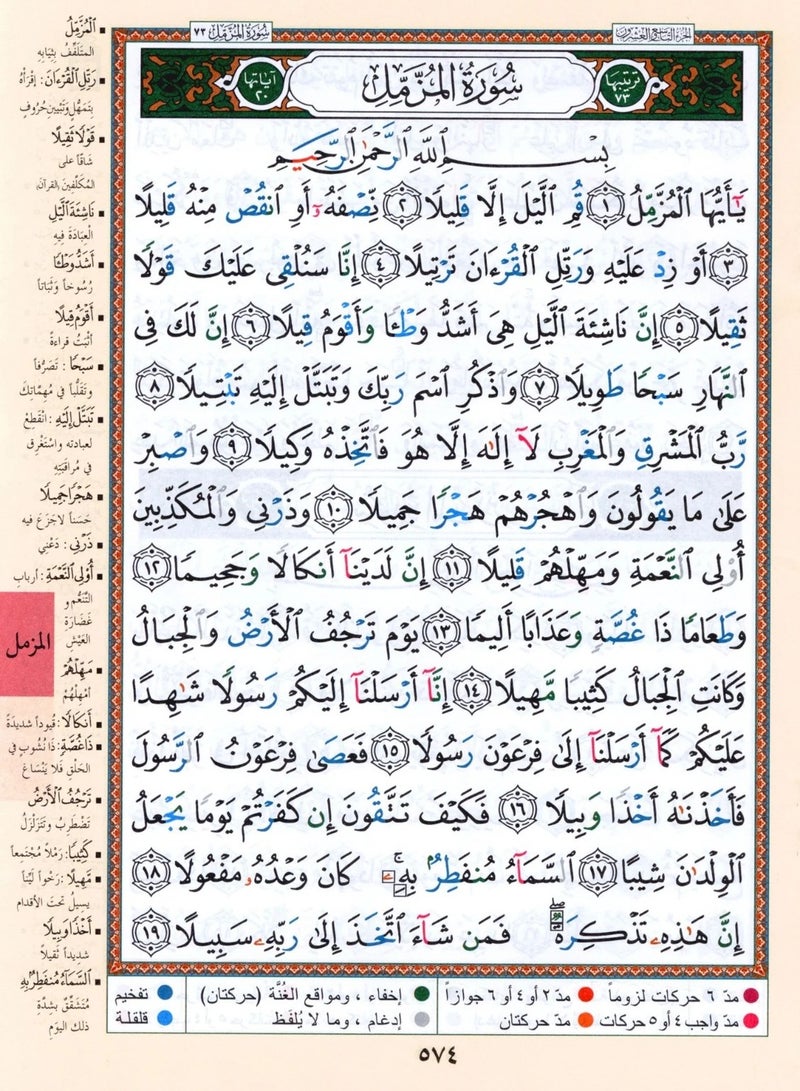 سُورَةُ المُزَّمِّل ٧٣
الجزء التاسع والعشرون
ترتيبها ٧٣
سُورَةُ المُزَّمِّل
آياتها ٢٠
بِسْمِ ٱللَّهِ ٱلرَّحْمَٰنِ ٱلرَّحِيمِ
يَٰٓأَيُّهَا ٱلْمُزَّمِّلُ ١ قُمِ ٱلَّيْلَ إِلَّا قَلِيلًا ٢ نِّصْفَهُۥٓ أَوِ ٱنقُصْ مِنْهُ قَلِيلًا
٣ أَوْ زِدْ عَلَيْهِ وَرَتِّلِ ٱلْقُرْءَانَ تَرْتِيلًا ٤ إِنَّا سَنُلْقِى عَلَيْكَ قَوْلًا
ثَقِيلًا ٥ إِنَّ نَاشِئَةَ ٱلَّيْلِ هِىَ أَشَدُّ وَطْـًٔا وَأَقْوَمُ قِيلًا ٦ إِنَّ لَكَ فِى
ٱلنَّهَارِ سَبْحًا طَوِيلًا ٧ وَٱذْكُرِ ٱسْمَ رَبِّكَ وَتَبَتَّلْ إِلَيْهِ تَبْتِيلًا ٨
رَّبُّ ٱلْمَشْرِقِ وَٱلْمَغْرِبِ لَآ إِلَٰهَ إِلَّا هُوَ فَٱتَّخِذْهُ وَكِيلًا ٩ وَٱصْبِرْ
عَلَىٰ مَا يَقُولُونَ وَٱهْجُرْهُمْ هَجْرًا جَمِيلًا ١٠ وَذَرْنِى وَٱلْمُكَذِّبِينَ
أُو۟لِى ٱلنَّعْمَةِ وَمَهِّلْهُمْ قَلِيلًا ١١ إِنَّ لَدَيْنَآ أَنكَالًا وَجَحِيمًا ١٢
وَطَعَامًا ذَا غُصَّةٍ وَعَذَابًا أَلِيمًا ١٣ يَوْمَ تَرْجُفُ ٱلْأَرْضُ وَٱلْجِبَالُ
وَكَانَتِ ٱلْجِبَالُ كَثِيبًا مَّهِيلًا ١٤ إِنَّآ أَرْسَلْنَآ إِلَيْكُمْ رَسُولًا شَٰهِدًا
عَلَيْكُمْ كَمَآ أَرْسَلْنَآ إِلَىٰ فِرْعَوْنَ رَسُولًا ١٥ فَعَصَىٰ فِرْعَوْنُ ٱلرَّسُولَ
فَأَخَذْنَٰهُ أَخْذًا وَبِيلًا ١٦ فَكَيْفَ تَتَّقُونَ إِن كَفَرْتُمْ يَوْمًا يَجْعَلُ
ٱلْوِلْدَٰنَ شِيبًا ١٧ ٱلسَّمَآءُ مُنفَطِرٌۢ بِهِۦ ۚ كَانَ وَعْدُهُۥ مَفْعُولًا ١٨
إِنَّ هَٰذِهِۦ تَذْكِرَةٌ ۖ فَمَن شَآءَ ٱتَّخَذَ إِلَىٰ رَبِّهِۦ سَبِيلًا ١٩
المُزَّمِّلُ
المتلفّفُ بثيابِهِ
رَتِّلِ ٱلْقُرْءَانَ: اِقرَأهُ
بتمهُّلٍ وتَبْيين حُروفٍ
قَوْلًا ثَقِيلًا
شاقّاً على
المكلَّفين بالقرآن
نَاشِئَةَ ٱلَّيْلِ
العِبادَةَ فِيهِ
أَشَدُّ وَطْـًٔا
رُسُوخاً وثَبَاتاً
أَقْوَمُ قِيلًا
أثْبَتُ قراءةً
سَبْحًا: تَصَرُّفاً
وتَقَلُّباً في مهِمَّاتِكَ
تَبَتَّلْ إِلَيْهِ: انْقَطِعْ
لعبادته واسْتَغْرِق
في مُراقَبَتِهِ
هَجْرًا جَمِيلًا
حَسَناً لا جَزَعَ فيه
ذَرْنِى: دَعْنِي
أُو۟لِى ٱلنَّعْمَةِ: أرباب
التَّنَعُّم و
غَضَارَةِ
العَيْشِ
المزمل
مَهِّلْهُمْ
أمْهِلْهُمْ
أَنكَالًا: قُيوداً شديدةً
ذَا غُصَّةٍ: ذا نُشُوبٍ في
الحَلْقِ فلا يَنْسَاغُ
تَرْجُفُ ٱلْأَرْضُ
تَضْطَرِبُ وتَتَزَلْزَلُ
كَثِيبًا: رَمْلاً مُجْتَمعاً
مَّهِيلًا: رَخْواً لَيِّناً
يسيلُ تحتَ الأقدام
أَخْذًا وَبِيلًا
شديداً ثقيلاً
ٱلسَّمَآءُ مُنفَطِرٌۢ بِهِ
مُتَشَقِّقٌ بشدَّةِ
ذلك اليَوْمِ
مدّ ٦ حركات لزوماً
مدّ ٢ أو ٤ أو ٦ جوازاً
إخفاء ، ومواقع الغُنَّة (حركتان)
تفخيم
مدّ واجب ٤ أو ٥ حركات
مدّ حركتان
إدغام ، وما لا يُلفَظ
قلقلة
٥٧٤